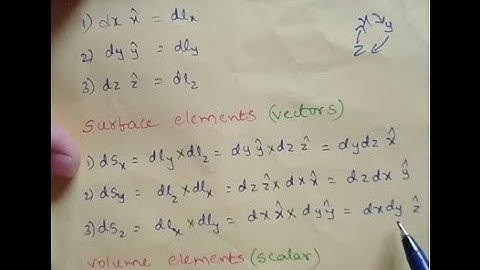 1) dx x̂ = dlx
x y
z
2) dy ŷ = dly
3) dz ẑ = dlz
Surface elements (vectors)
1) dSx = dly × dlz = dy ŷ × dz ẑ = dydz x̂
2) dSy = dlz × dlx = dz ẑ × dx x̂ = dzdx ŷ
3) dSz = dlx × dly = dx x̂ × dy ŷ = dxdy ẑ
volume elements (scalar)